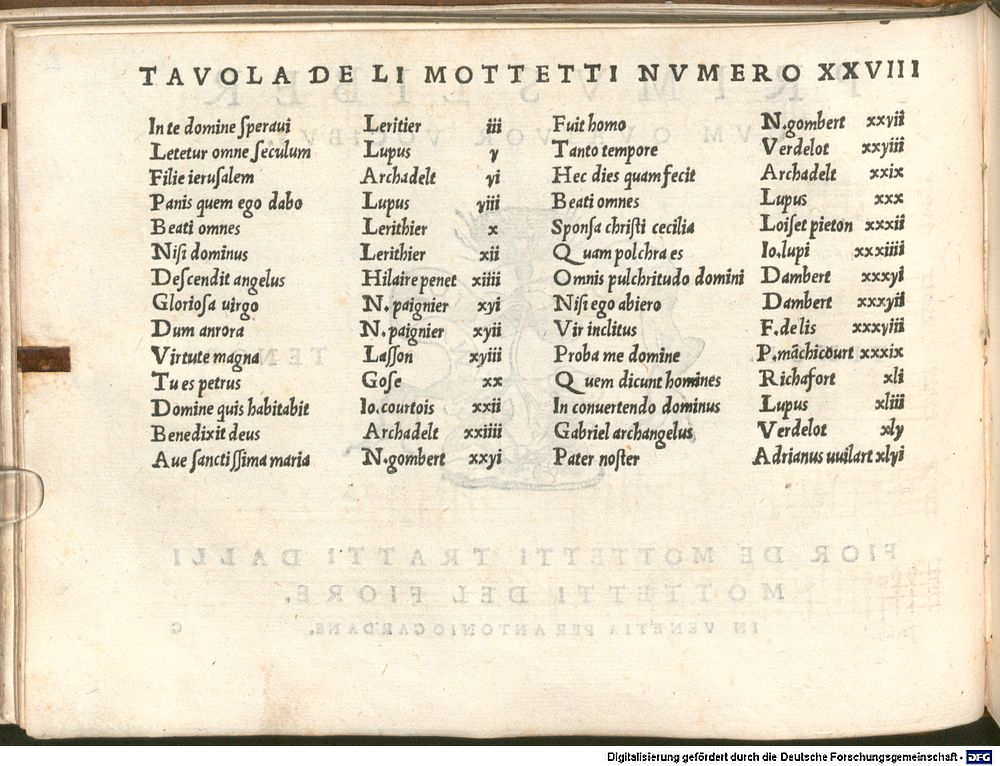 TAVOLA DE LI MOTTETTI NVMERO XXVIII
In te domine speraui Leritier iii
Letetur omne seculum Lupus v
Filie ierusalem Archadelt vi
Panis quem ego dabo Lupus viii
Beati omnes Lerithier x
Nisi dominus Lerithier xii
Descendit angelus Hilaire penet xiiii
Gloriosa uirgo N. paignier xvi
Dum anrora N. paignier xvii
Virtute magna Lasson xviii
Tu es petrus Gose xx
Domine quis habitabit Io. courtois xxii
Benedixit deus Archadelt xxiiii
Aue sanctissima maria N. gombert xxvi
Fuit homo N. gombert xxvii
Tanto tempore Verdelot xxviii
Hec dies quam fecit Archadelt xxix
Beati omnes Lupus xxx
Sponsa christi cecilia Loiset pieton xxxii
Quam polchra es Io. lupi xxxiiii
Omnis pulchritudo domini Dambert xxxvi
Nisi ego abiero Dambert xxxvii
Vir inclitus F. de lis xxxviii
Proba me domine P. mãchicourt xxxix
Quem dicunt homines Richafort xli
In conuertendo dominus Lupus xliii
Gabriel archangelus Verdelot xlv
Pater noster Adrianus uuilart xlvi
FIOR DE MOTTETTI TRATTI DALLI
MOTTETTI DEL FIORE.
IN VENETIA PER ANTONIO GARDANE.
G
Digitalisierung gefördert durch die Deutsche Forschungsgemeinschaft - DFG